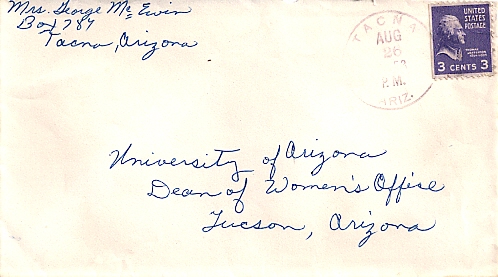 Mrs. George Mc Ewin
Box 784
Tacna, Arizona
TACNA
AUG
26
P.M.
ARIZ.
UNITED
STATES
POSTAGE
3 CENTS 3
University of Arizona
Dean of Women's Office
Tucson, Arizona